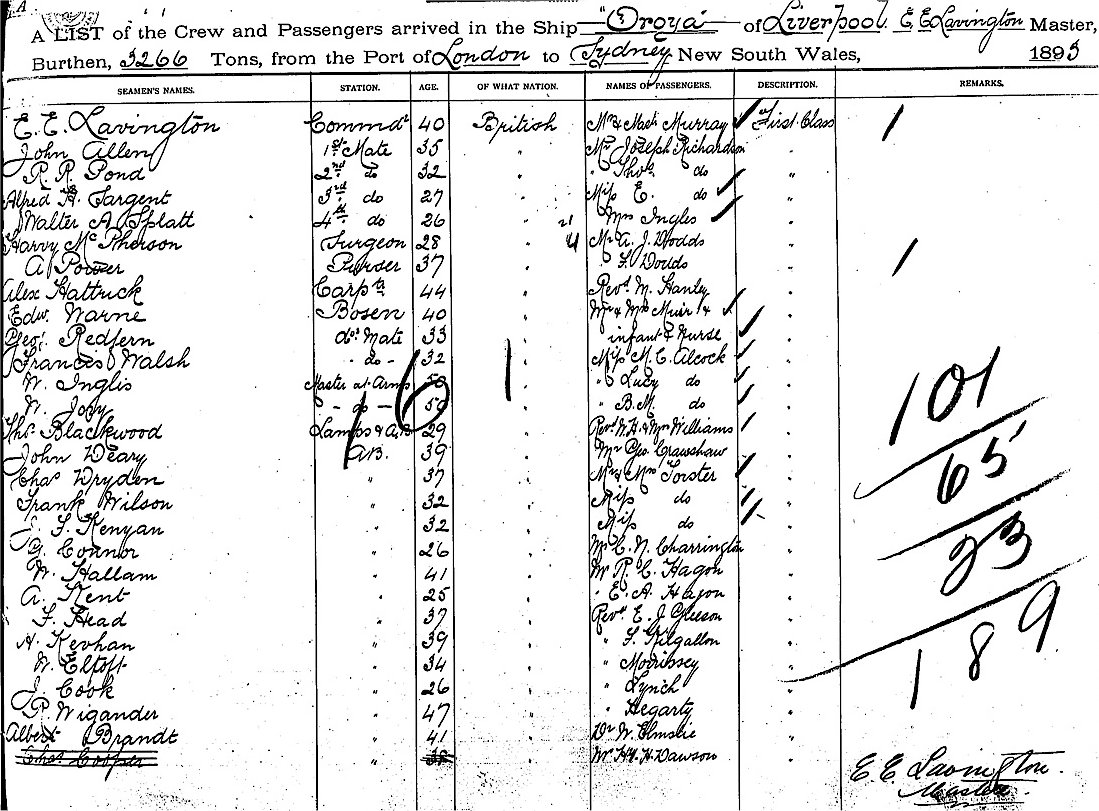 A LIST of the Crew and Passengers arrived in the Ship "Oroya" of Liverpool. E E Lavington Master,
Burthen, 3266 Tons, from the Port of London to Sydney New South Wales, 1893
SEAMEN'S NAMES. STATION. AGE. OF WHAT NATION. NAMES OF PASSENGERS. DESCRIPTION. REMARKS.
E. E. Lavington Commdr 40 British Mr & Murray First Class
John Allen 1st Mate 35 " Mr Joseph Richardson "
R. R. Pond 2nd do 32 " " Thos do "
Alfred H. Sargent 3rd do 27 " Miss E. do "
Walter A Splatt 4th do 26 " Mrs Ingles "
Harvy Mc Pherson Surgeon 28 " Mr A. J. Dodds "
A Power Purser 37 " " F. Dodds "
Alex Hattrick Carptr 44 " Revd M. Hanley "
Edw. Warne Bosen 40 " Mr & Mrs Muir 1 &
Geo. Redfern dos Mate 33 " infant & Nurse "
Frances Walsh - do - 32 " Miss M. C. Alcock "
W. Inglis Master at Arms 50 " " Lucy do "
W. Jory - do - 50 " " B. M. do "
Thos Blackwood Lamps & AB 29 " Revd W. H. & Mrs Williams "
John Deary AB. 39 " Mr Geo. Crawshaw "
Chas Dryden " 37 " Mr & Mrs Forster "
Frank Wilson " 32 " Miss do "
J. F. Kenyan " 32 " Miss do "
G. Connor " 26 " Mr C. N. Charrington "
W. Hallam " 41 " Mr P. C. Hagon "
A. Kent " 25 " " E. A. Hagon "
F. Head " 37 " Revd E. J. Gleeson "
H. Kevhan " 39 " " F. Kilgallon "
W. Eltoft " 34 " " Morrissey "
J. Cook " 26 " " Lynch "
P. Wigander " 47 " " Hegarty "
Albert Brandt " 41 " Dr W. Elmslie "
Chas Cooper 38 " Mr H. H. Dawson "
101
65
23
189
E. E. Lavington.
Master